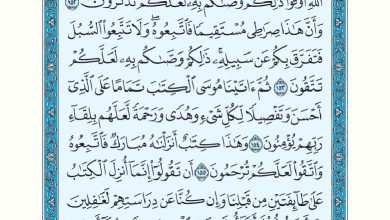 ٱللَّهِ أَوْفُوا۟ ذَٰلِكُمْ وَصَّىٰكُم بِهِۦ لَعَلَّكُمْ تَذَكَّرُونَ ١٥٢
وَأَنَّ هَٰذَا صِرَٰطِى مُسْتَقِيمًا فَٱتَّبِعُوهُ ۖ وَلَا تَتَّبِعُوا۟ ٱلسُّبُلَ
فَتَفَرَّقَ بِكُمْ عَن سَبِيلِهِۦ ۚ ذَٰلِكُمْ وَصَّىٰكُم بِهِۦ لَعَلَّكُمْ
تَتَّقُونَ ١٥٣ ثُمَّ ءَاتَيْنَا مُوسَى ٱلْكِتَٰبَ تَمَامًا عَلَى ٱلَّذِىٓ
أَحْسَنَ وَتَفْصِيلًا لِّكُلِّ شَىْءٍ وَهُدًى وَرَحْمَةً لَّعَلَّهُم بِلِقَآءِ
رَبِّهِمْ يُؤْمِنُونَ ١٥٤ وَهَٰذَا كِتَٰبٌ أَنزَلْنَٰهُ مُبَارَكٌ فَٱتَّبِعُوهُ
وَٱتَّقُوا۟ لَعَلَّكُمْ تُرْحَمُونَ ١٥٥ أَن تَقُولُوٓا۟ إِنَّمَآ أُنزِلَ ٱلْكِتَٰبُ
عَلَىٰ طَآئِفَتَيْنِ مِن قَبْلِنَا وَإِن كُنَّا عَن دِرَاسَتِهِمْ لَغَٰفِلِينَ